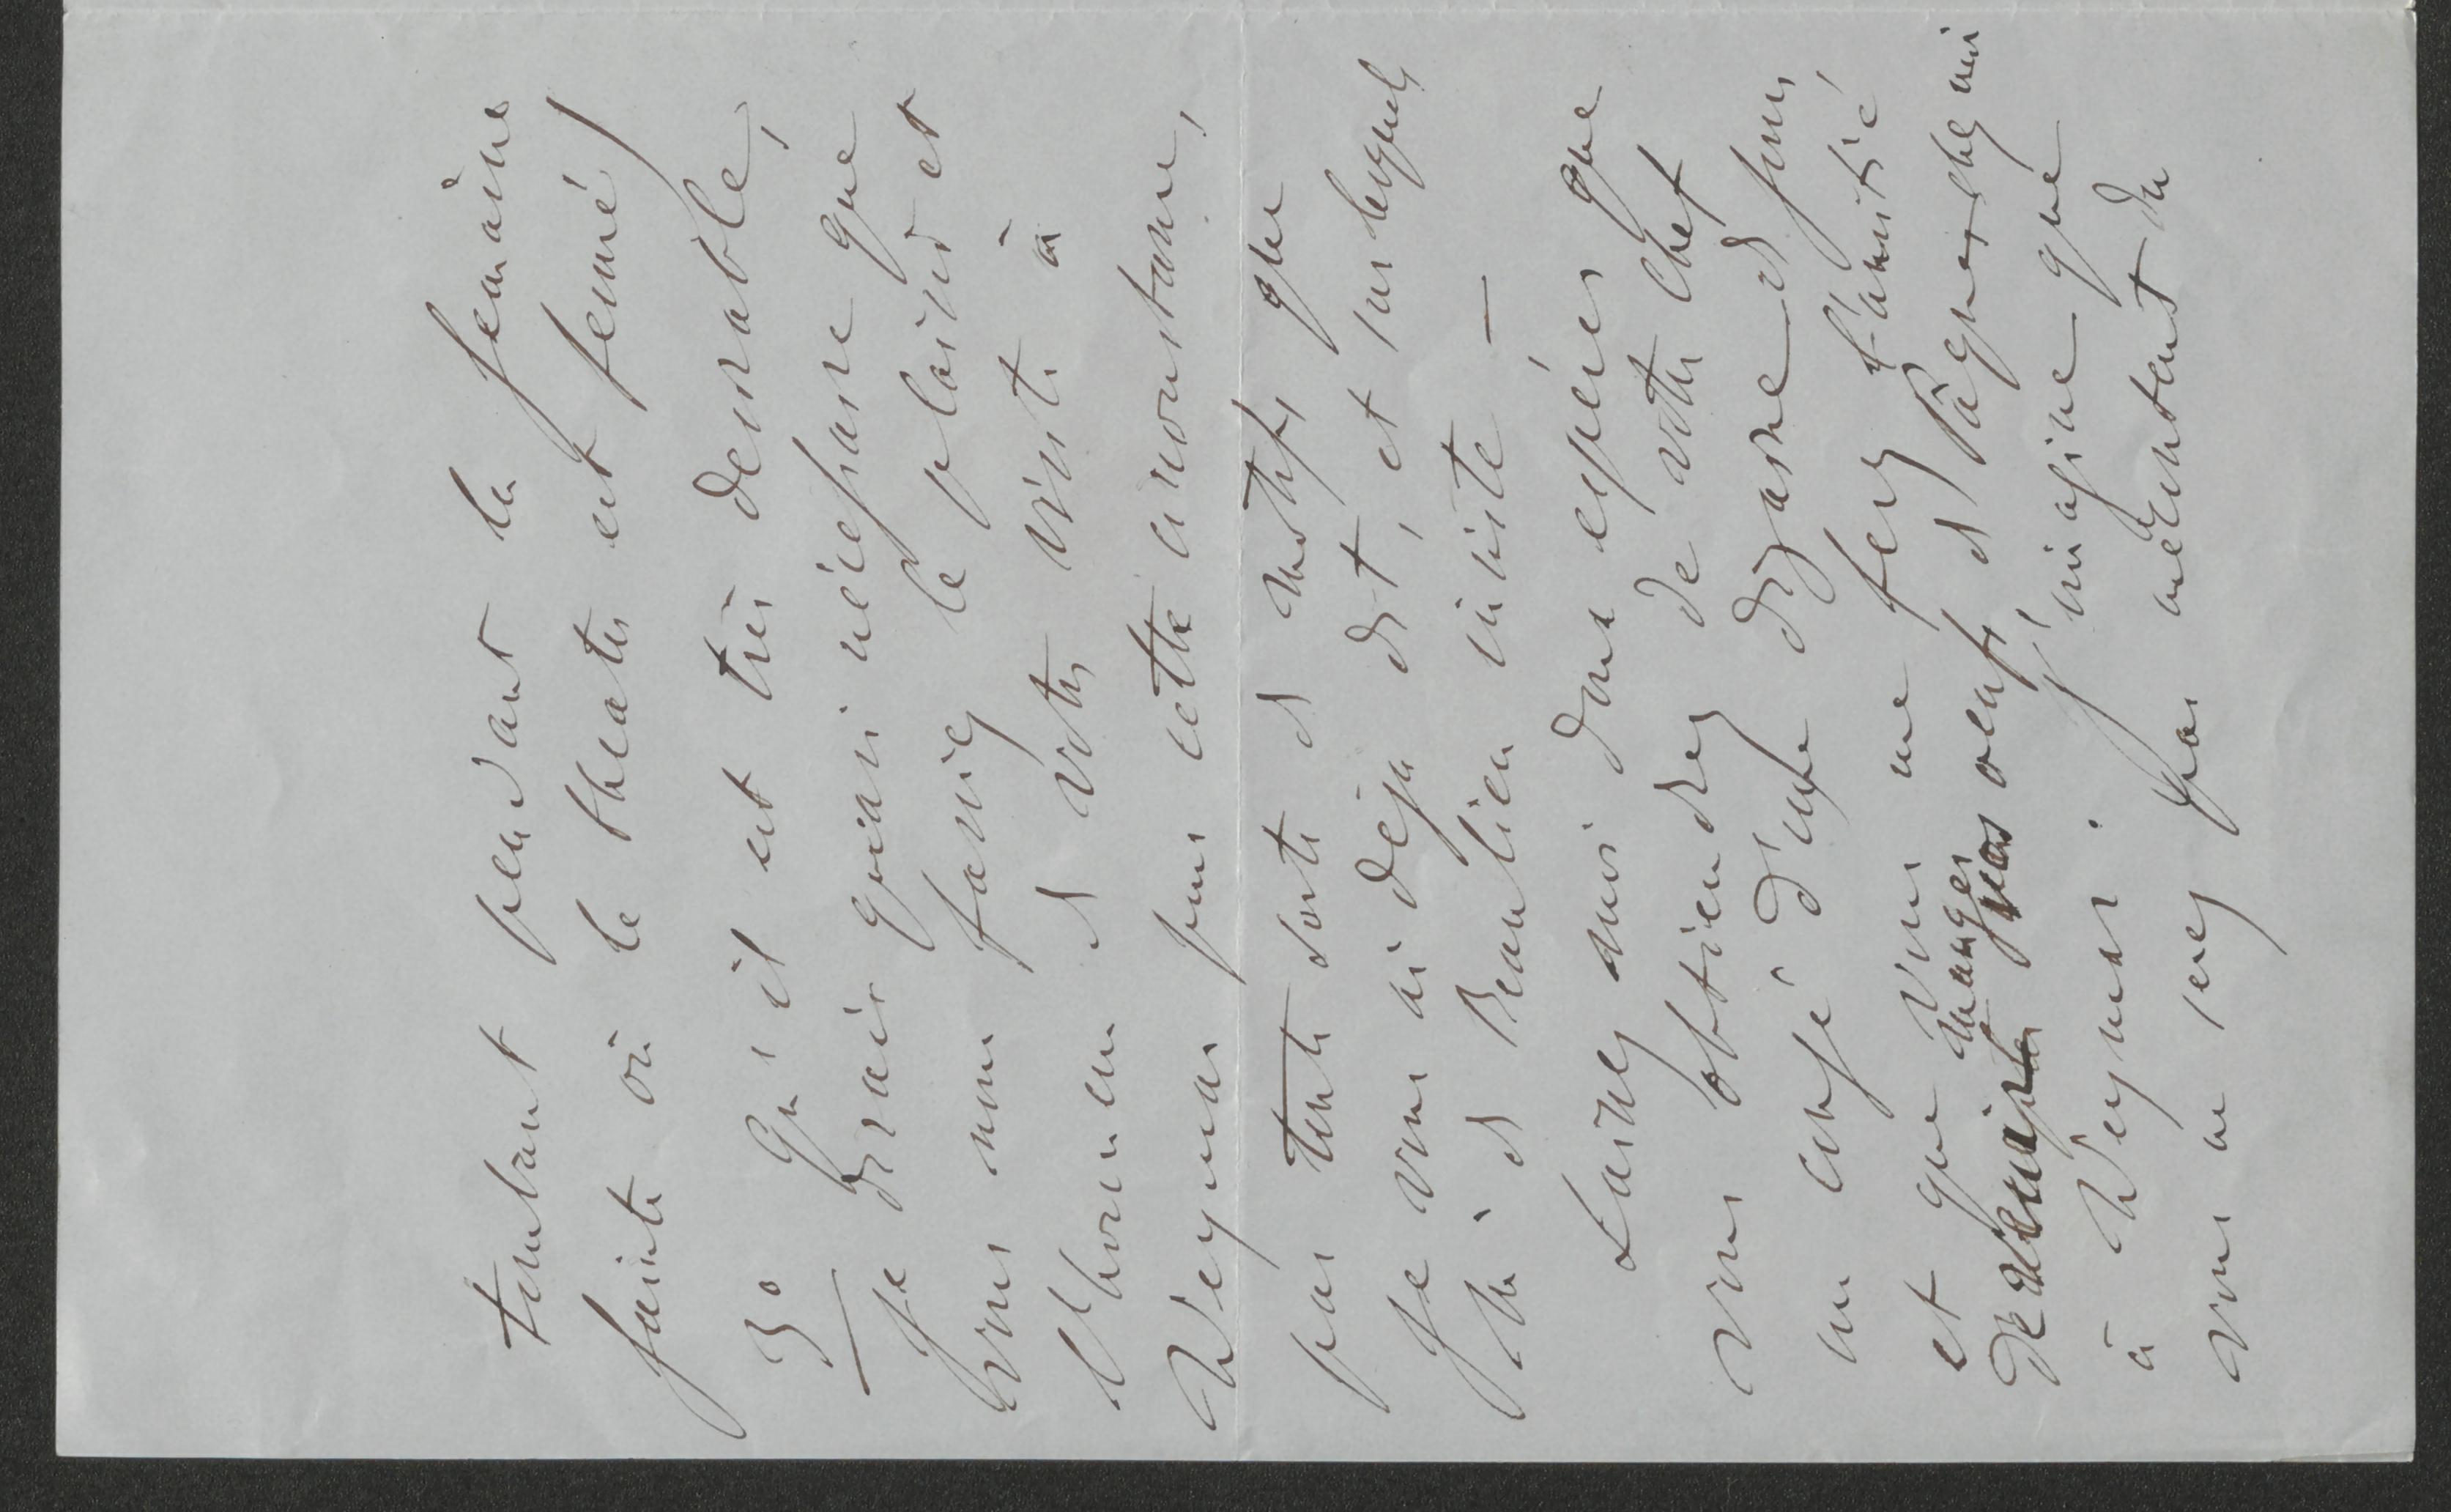 tombant pendant la semaine
sainte où le théatre est fermé)
3º Qu'il est très desirable,
je dirais quasi nécessaire que
vous nous fassiez le plaisir et
l'honneur de votre visite à
Weymar pour cette circonstance,
par toute sorte de motifs que
je vous ai déja dit, et sur lesquels
Mr de Beaulieu insiste —
Laissez moi donc espérer que
vous obtiendrez de votre chef
un congé d'une dizaine de jours
et que vous me ferez l'amitié
de manger nos oeufs de Pâques chez moi
à Weymar. J'imagine que
vous ne serez pas mécontent du